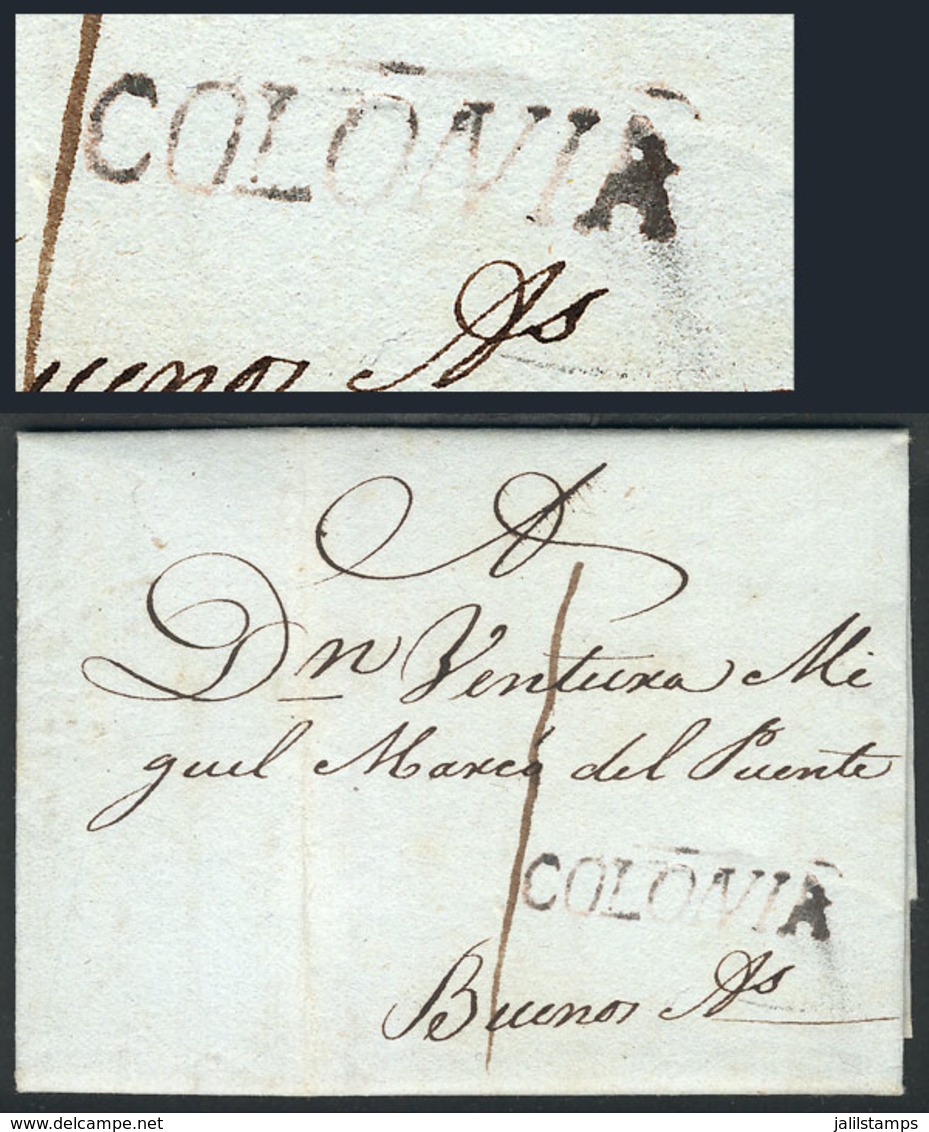 COLONIA
uenos As
A
Dn Ventura Mi
guel Marcó del Puente
COLONIA
Buenos As
delcampe.net
jalilstamps